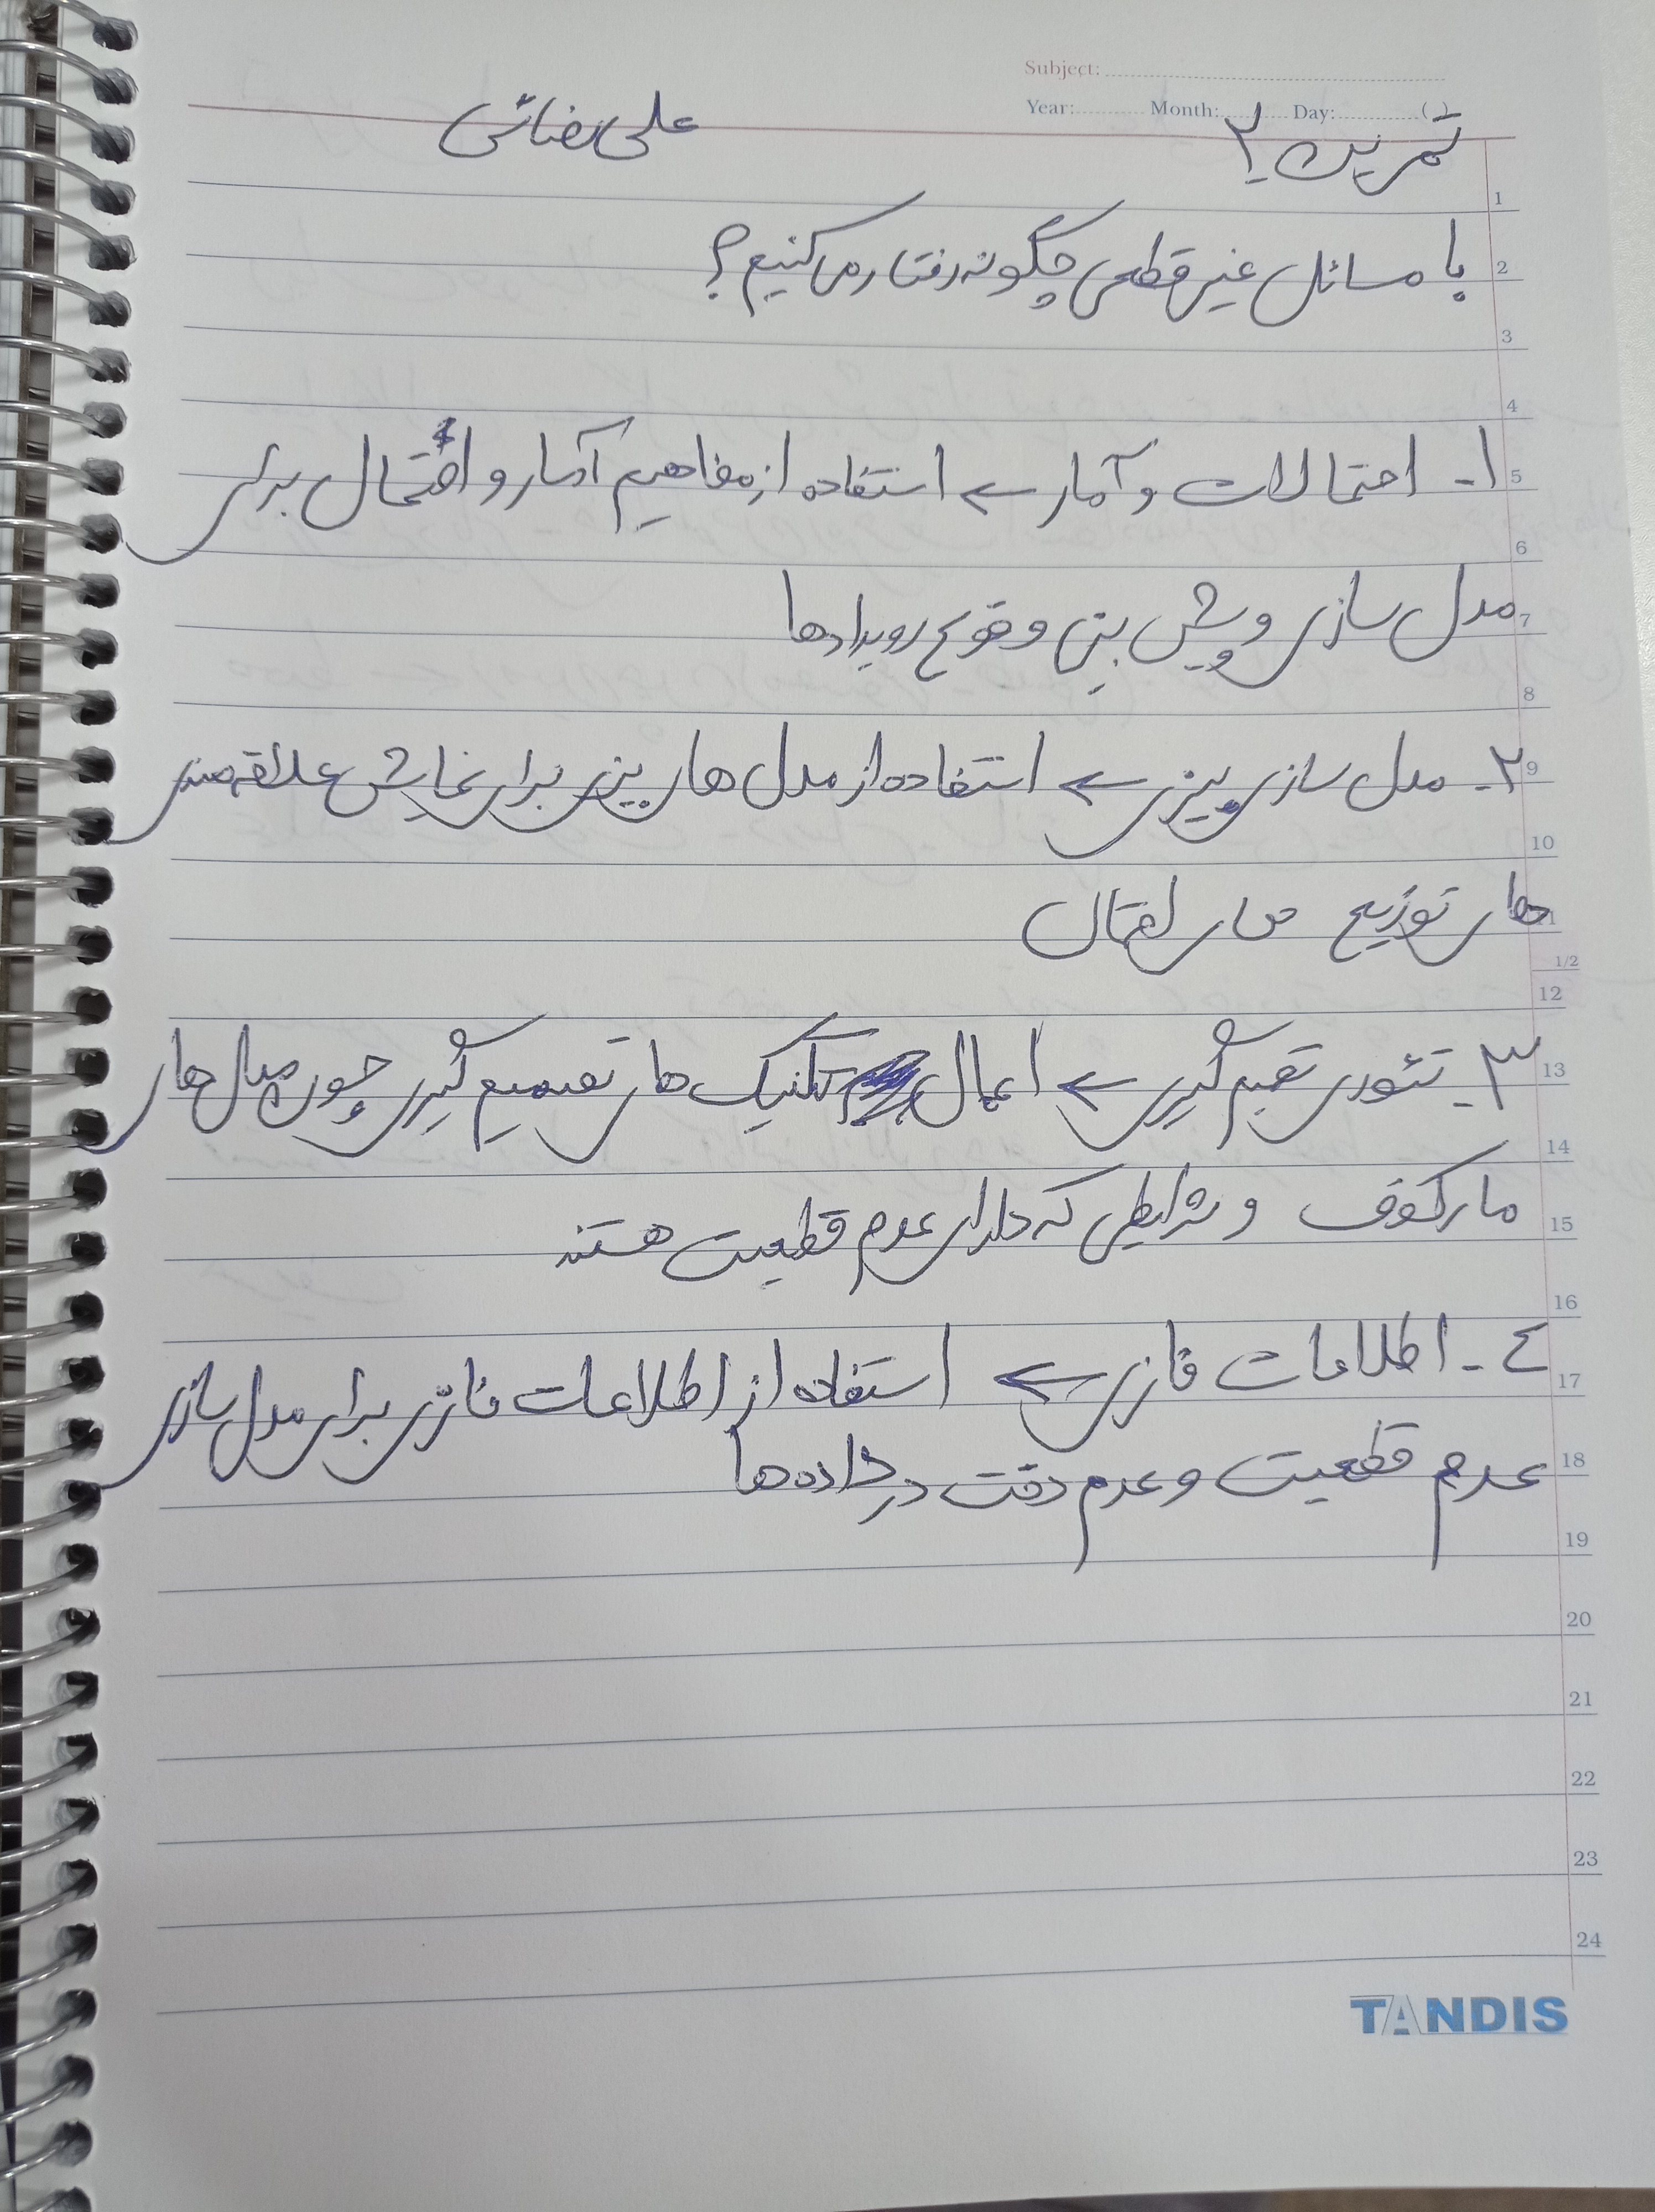 Subject:
Year: Month: Day: ( )
تمرین ۲ علی رضائی
با مسائل غیر قطعی چگونه رفتار می کنیم؟
۱- احتمالات و آمار ← استفاده از مفاهیم آمار و احتمال برای
مدل سازی و پیش بینی وقوع رویدادها
۲- مدل سازی بیزی ← استفاده از مدل های بیزی برای نمایش علاقه مندی
های توزیع های احتمال
۳- تئوری تصمیم گیری ← اعمال تکنیک های تصمیم گیری چون مدل های
مارکوف و شرایطی که دارای عدم قطعیت هستند
٤- اطلاعات فازی ← استفاده از اطلاعات فازی برای مدل سازی
عدم قطعیت و عدم دقت در داده ها
1
2
3
4
5
6
7
8
9
10
11
1/2
12
13
14
15
16
17
18
19
20
21
22
23
24
TANDIS